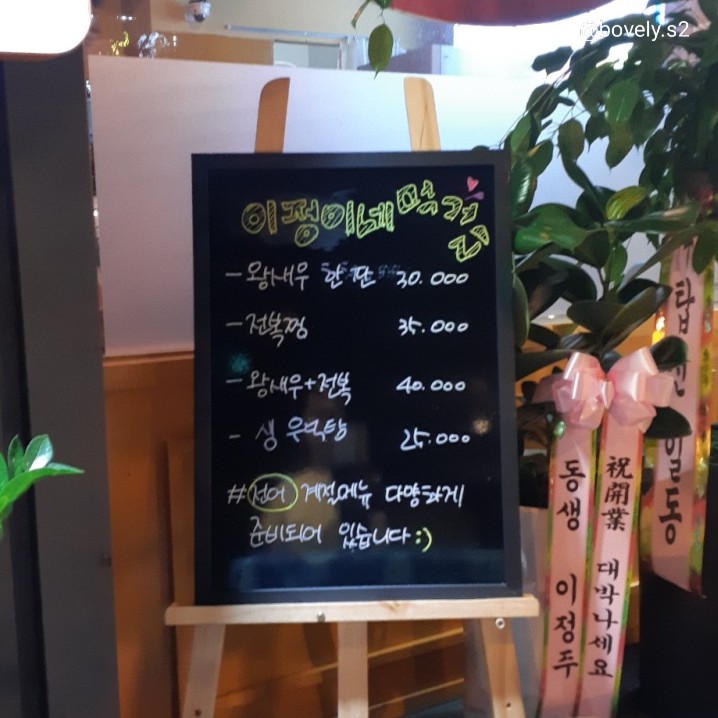 @bovely.s2
이정이네 먹걸리
- 왕새우 한판 30.000
- 전복찜 35.000
- 왕새우+전복 40.000
- 생 우럭탕 25.000
#전어 계절메뉴 다양하게
준비되어 있습니다 :)
동생 이정두
祝開業 대박나세요
일동